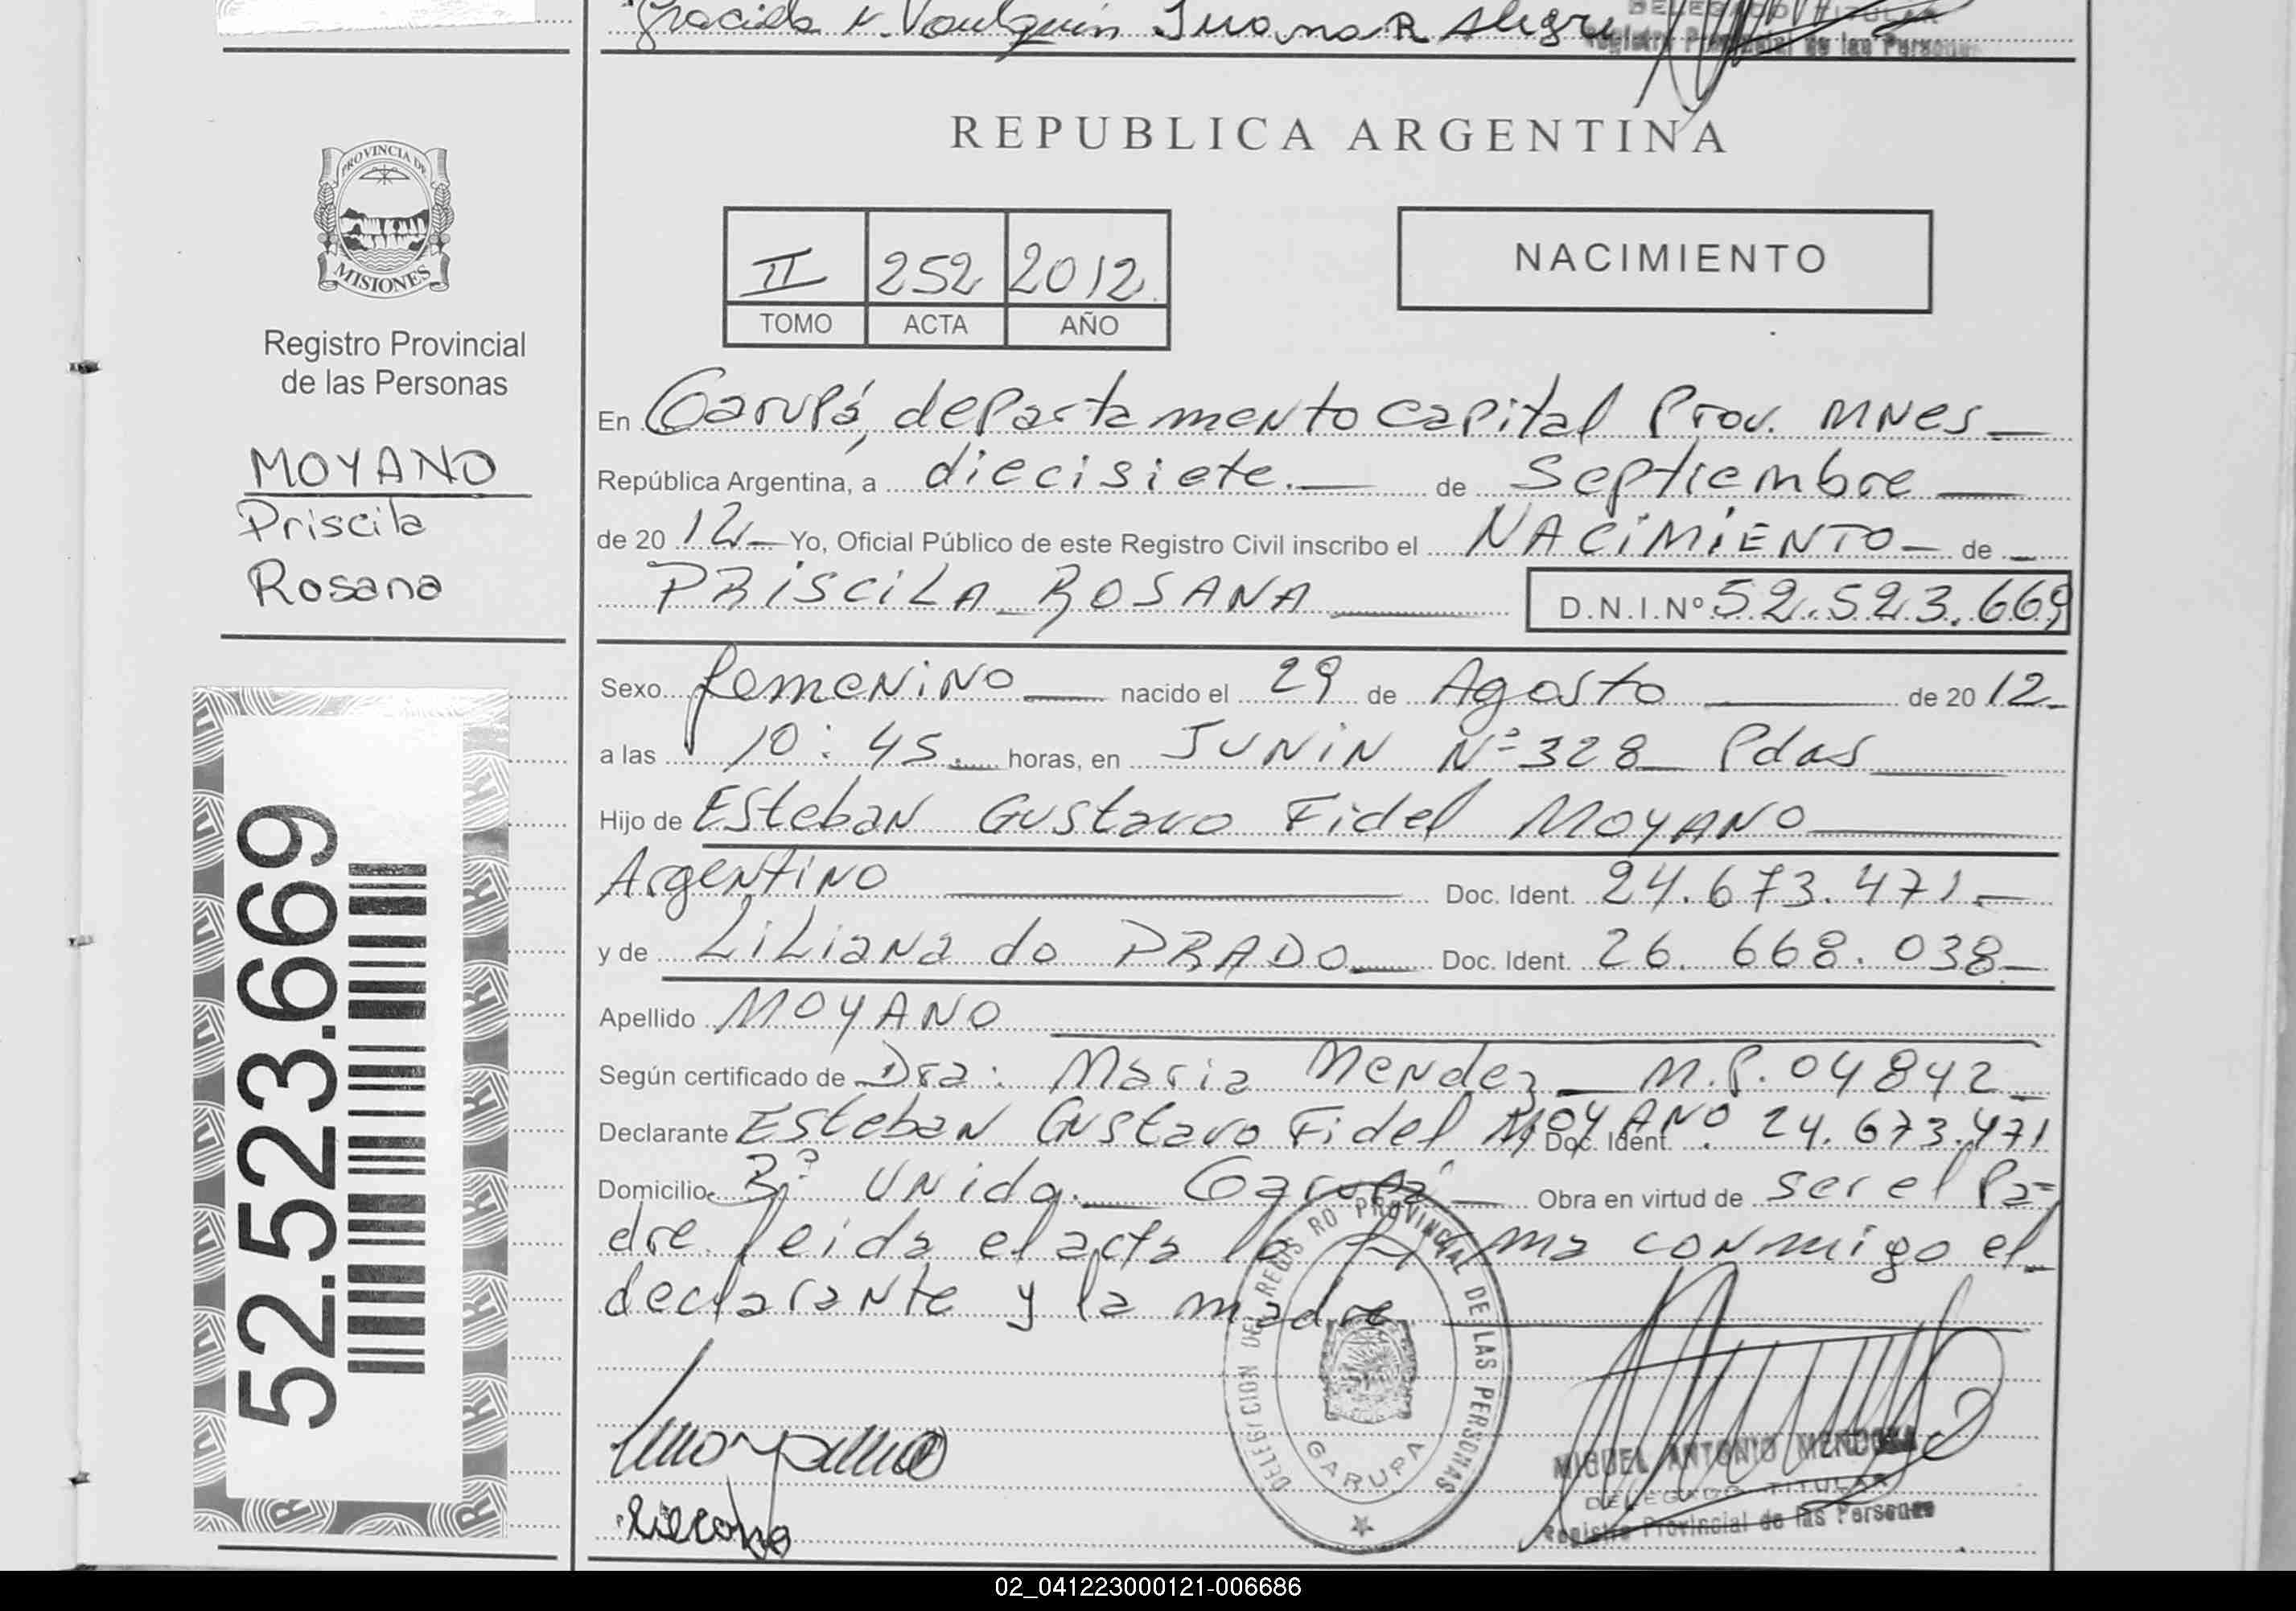 Graciela N. Juana R Alegre
DELEGADO TITULAR
Registro Provincial de las Personas
REPUBLICA ARGENTINA
PROVINCIA DE
MISIONES
Registro Provincial
de las Personas
MOYANO
Priscila
Rosana
II 252 2012
TOMO ACTA AÑO
NACIMIENTO
En Garupá, departamento capital Prov. MNes
República Argentina, a diecisiete. de Septiembre
de 20 12 Yo, Oficial Público de este Registro Civil inscribo el NACIMIENTO de
PRISCILA ROSANA D.N.I.Nº 52.523.669
Sexo femenino nacido el 29 de Agosto de 20 12
a las 10:45 horas, en JUNIN Nº 328 Pdas
Hijo de Esteban Gustavo Fidel MOYANO
Argentino Doc. Ident. 24.673.471
y de Liliana do PRADO Doc. Ident. 26.668.038
Apellido MOYANO
Según certificado de Dra: Maria Mendez M.P. 04842
Declarante Esteban Gustavo Fidel MOYANO Doc. Ident. 24.673.471
Domicilio Bº Unida. Garupá Obra en virtud de ser el Pa-
dre leida el acta la firma conmigo el
declarante y la madre
52.523.669
DELEGACION DEL REGISTRO PROVINCIAL DE LAS PERSONAS
GARUPA
MIGUEL ANTONIO MENDOZA
DELEGADO TITULAR
Registro Provincial de las Personas
02_041223000121-006686